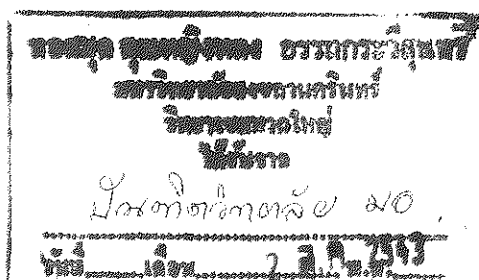 หอสมุด คุณหญิงหลง อรรถกระวีสุนทร
มหาวิทยาลัยสงขลานครินทร์
วิทยาเขตหาดใหญ่
ได้รับจาก
บัณฑิตวิทยาลัย มอ.
วันที่ เดือน 2 2543